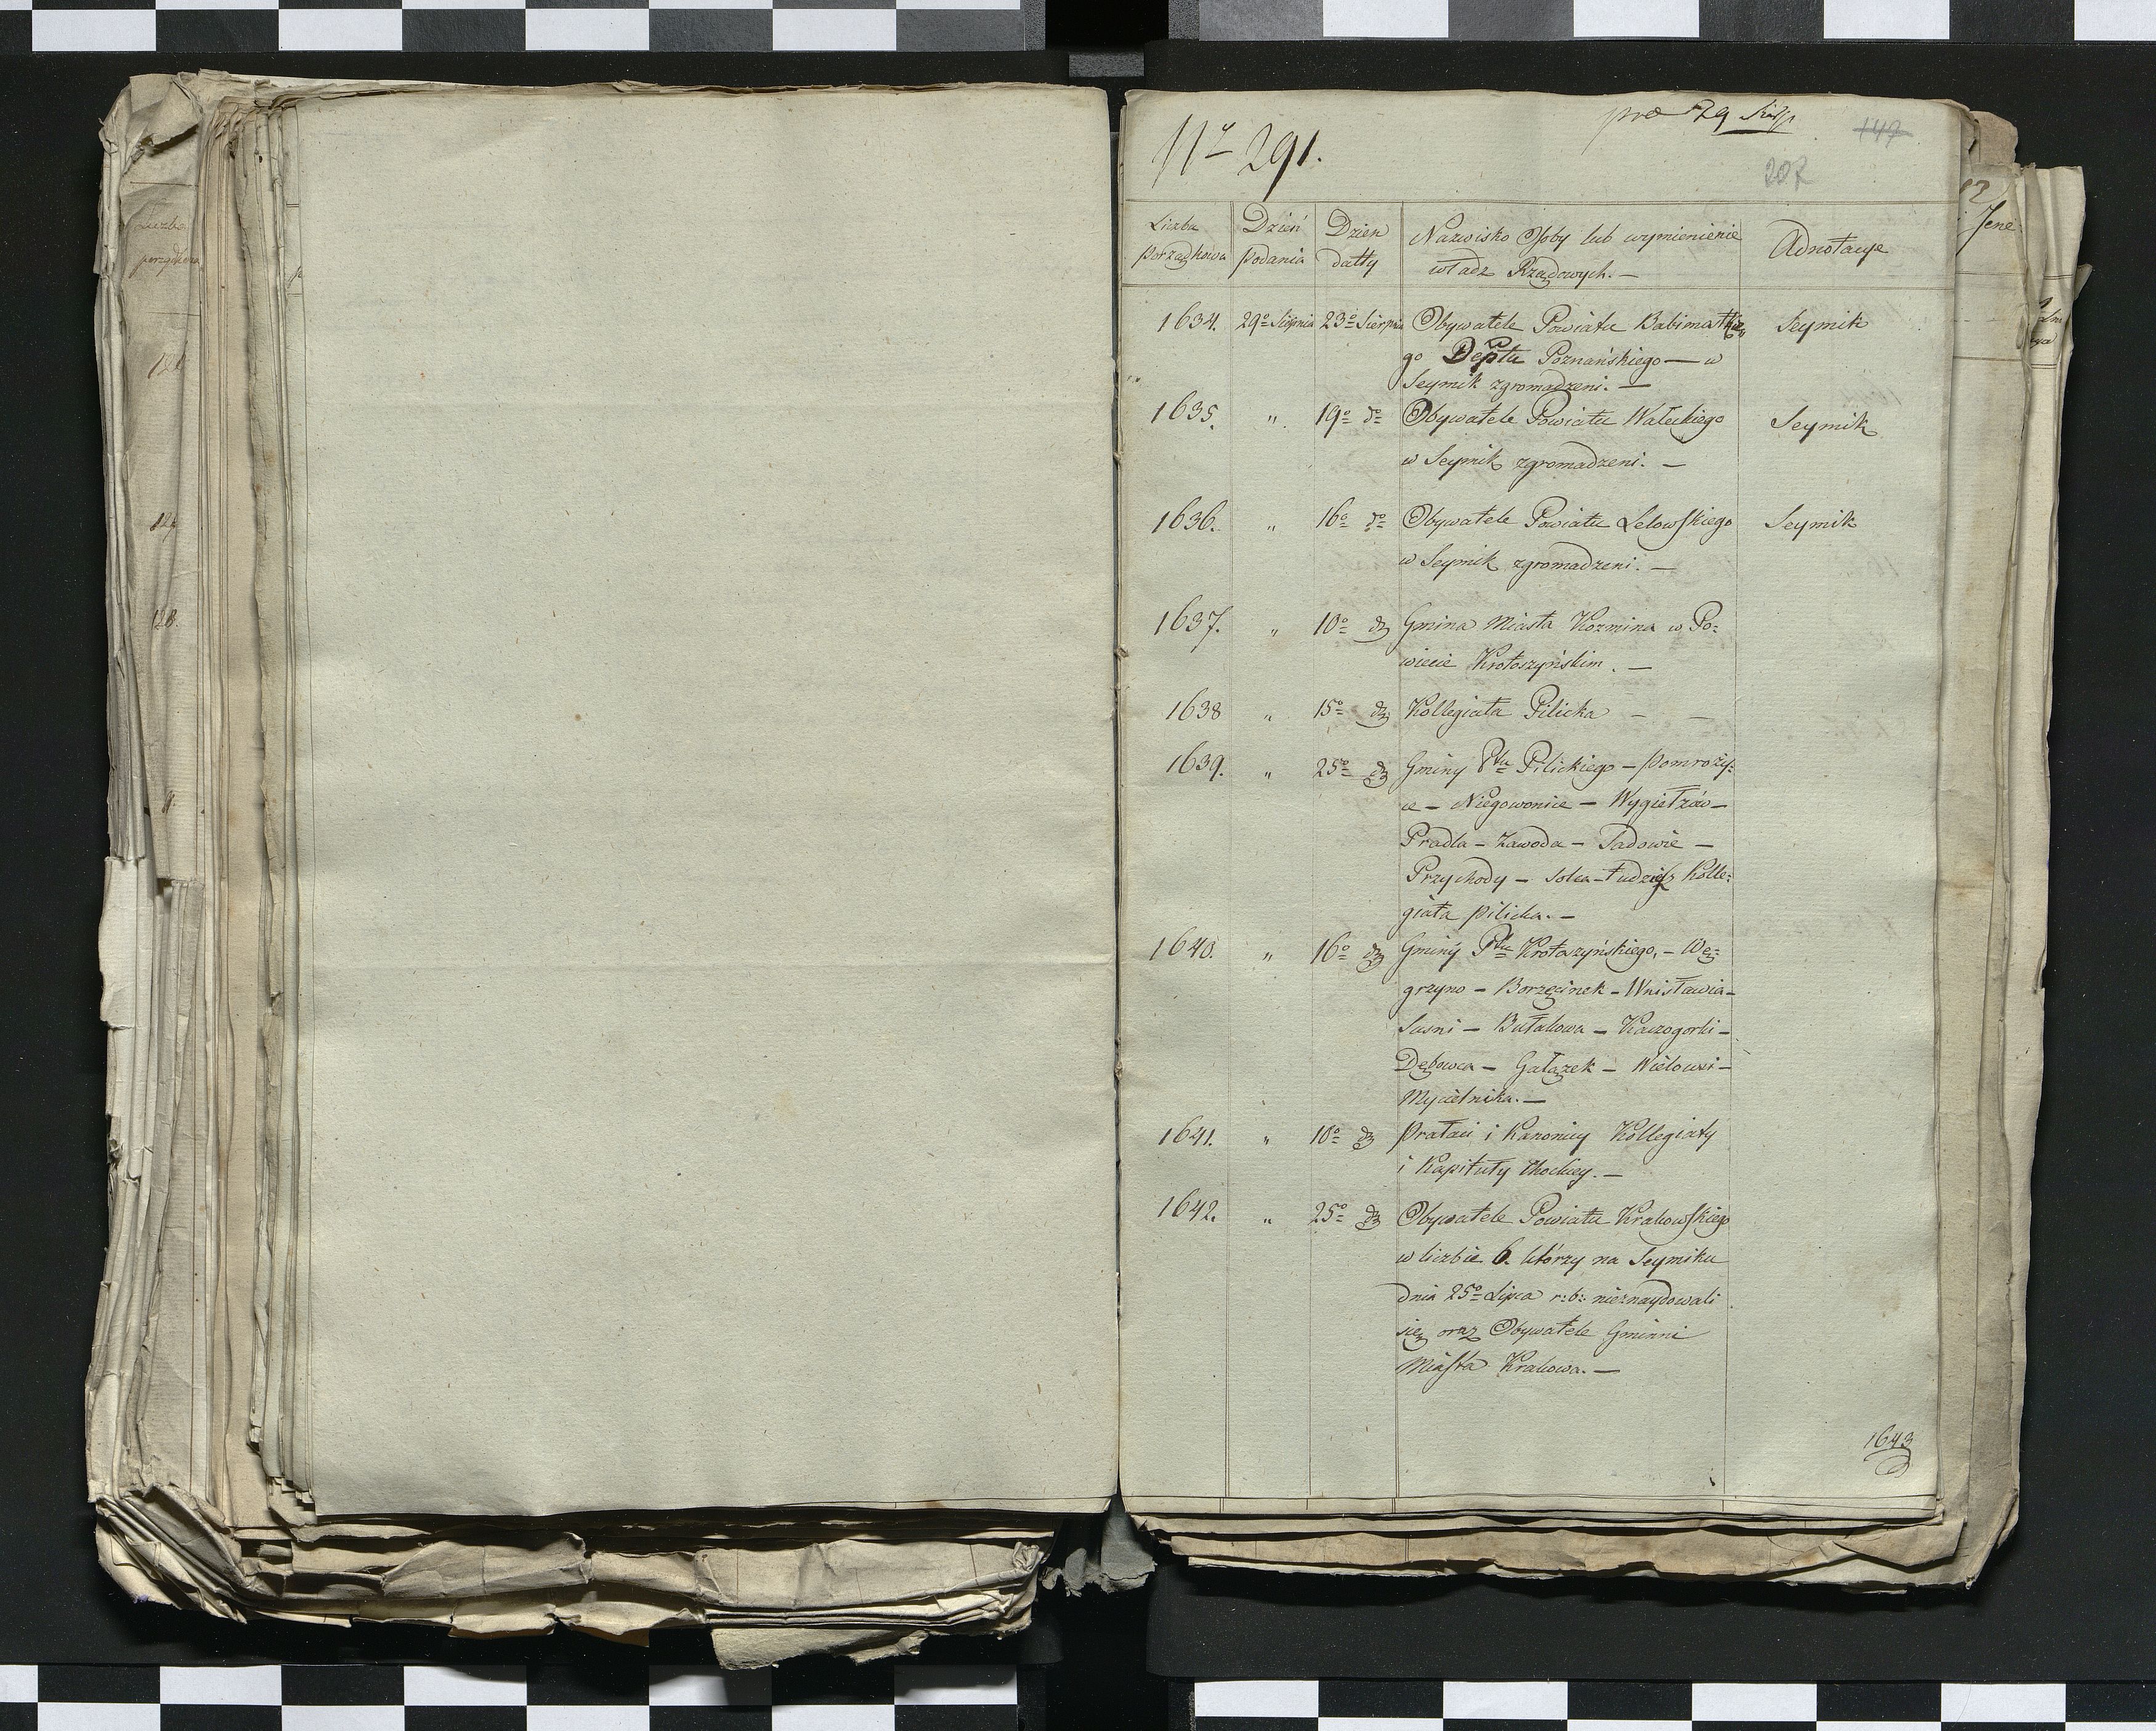 Nº 291.
pro 29 Sierp
147
207
Liczba porządkowa
Dzień podania
Dzien datty
Nazwisko Osoby lub wymienienie władz Rządowych. —
Adnotacye
1634. 29º Sierpnia 23º Sierpnia Obywatele Powiatu Babimostkie Seymik
go Deptu Poznańskiego — w
Seymik zgromadzeni. —
1635. " 19º dº Obywatele Powiatu Wałeckiego Seymik
w Seymik zgromadzeni. —
1636. " 16º dº Obywatele Powiatu Lelowskiego Seymik
w Seymik zgromadzeni. —
1637. " 10º Gmina Miasta Kozmina w Po:
wiecie Krotoszyńskim. —
1638 " 15º Kollegiata Pilicka — —
1639. " 25º Gminy Ptu Pilickiego — Pomrozy:
ce — Niegowonice — Wygiełzów —
Pradla — Zawoda — Sadowie —
Przychody — Solca — tudzież Kolle:
giata pilicka. —
1640. " 16º Gminy Ptu Krotoszyńskiego, — Wę:
grzyno — Borzęcinek — Wnisławia —
Susni — Bułakowa — Kaczogorki —
Dębowca — Gałązek — Wielowsi —
Mycielnika. —
1641. " 10º Prałaci i Kanonicy Kollegiaty
i Kapituły —
1642. " 25º Obywatele Powiatu Krakowskiego
w liczbie 6. którzy na Seymiku
dnia 25º Lipca r: b: nieznaydowali
się oraz Obywatele Gminni
Miasta Krakowa. —
1643